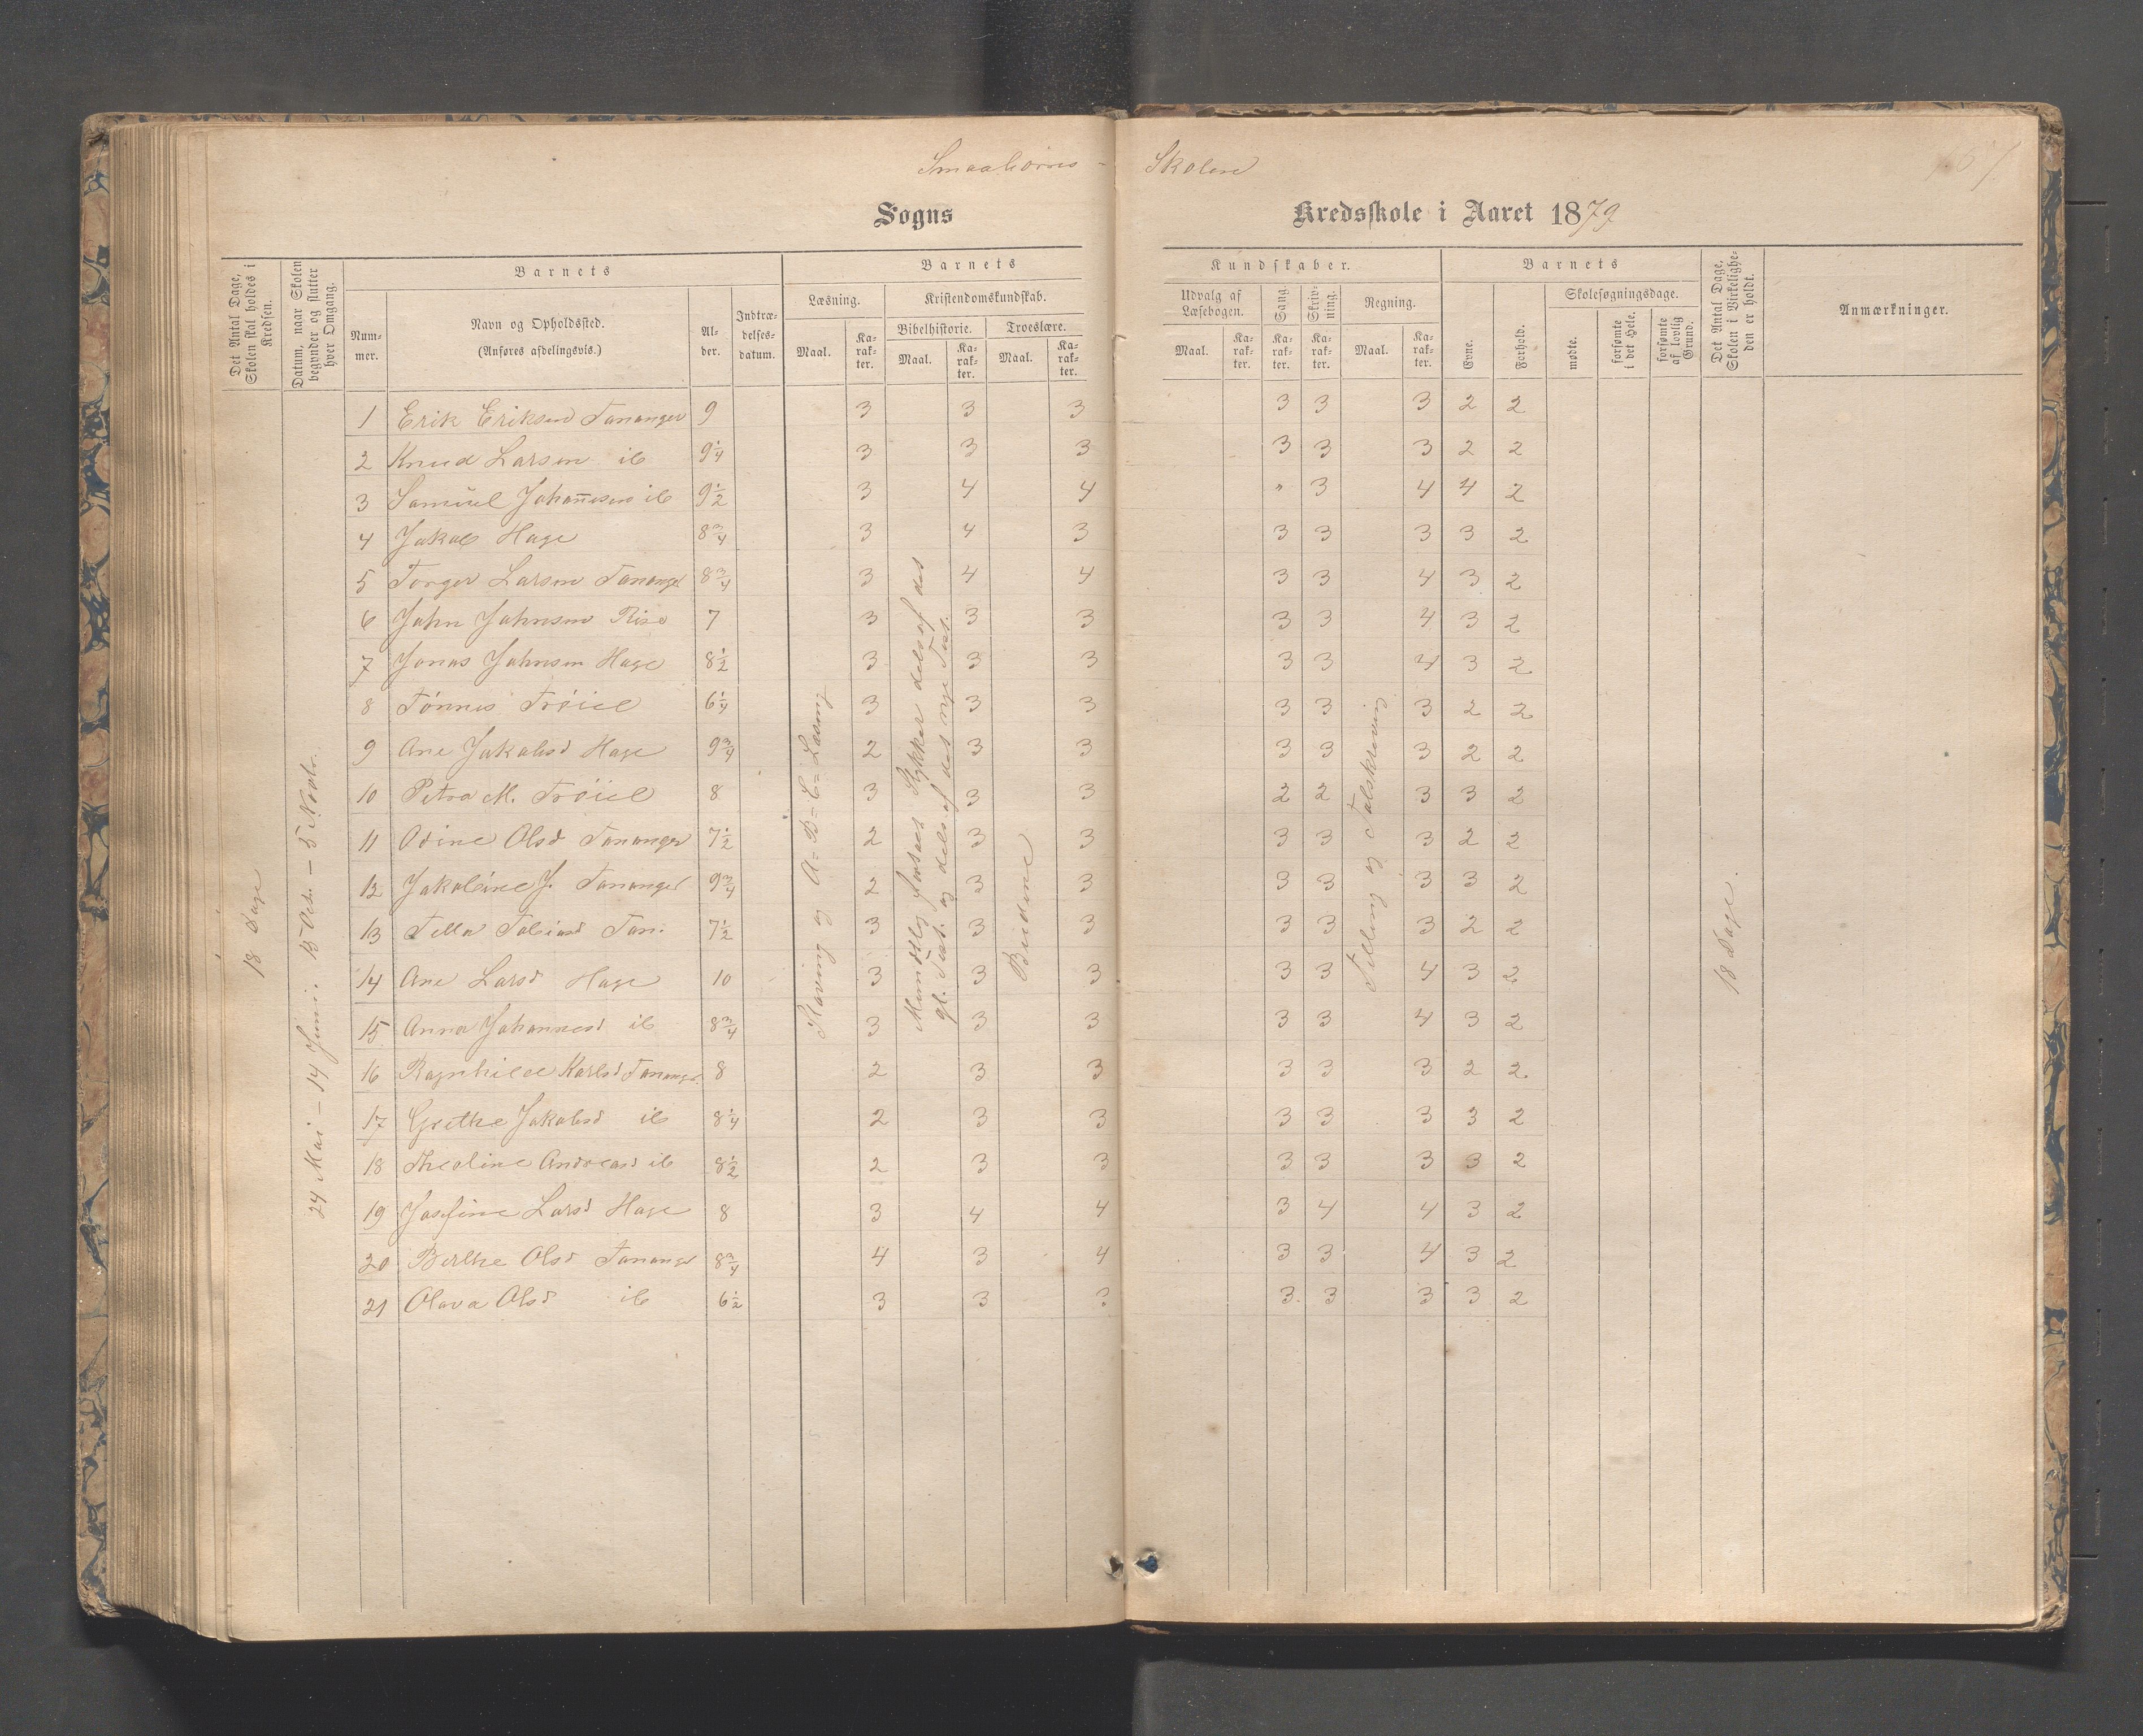 Smaabørns - Skolen
Sogns Kredsskole i Aaret 1879
Det Antal Dage, Skolen skal holdes i Kredsen.
Datum, naar Skolen begynder og slutter hver Omgang.
Barnets
Nummer.
Navn og Opholdssted.
(Anføres afdelingsvis.)
Alder.
Indtrædelsesdatum.
Barnets
Læsning.
Maal.
Karakter.
Kristendomskundskab.
Bibelhistorie.
Maal.
Karakter.
Troeslære.
Maal.
Karakter.
Kundskaber.
Udvalg af Læsebogen.
Maal.
Karakter.
Sang.
Karakter.
Skrivning.
Karakter.
Regning.
Maal.
Karakter.
Barnets
Evne.
Forhold.
Skolesøgningsdage.
mødte.
forsømte i det Hele.
forsømte af lovlig Grund.
Det Antal Dage, Skolen i Virkeligheden er holdt.
Anmærkninger.
18 Dage
24 Mai - 14 Juni. 15 Octr. - 5 Novbr.
Staving og A-B-C-Læsning
Mundtlig Stykker dels af det
gl. Test. og dels af det nye Test.
Budene
Telling og Talskrivning
18 Dage.
1 Erik Eriksen Tananger 9 3 3 3 3 3 3 2 2
2 Knud Larsen ib 9 1/4 3 3 3 3 3 3 2 2
3 Samuel Johannesen ib 9 1/2 3 4 4 " 3 4 4 2
4 Jakob Hage 8 3/4 3 4 3 3 3 3 3 2
5 Torger Larsen Tananger 8 3/4 3 4 4 3 3 4 3 2
6 John Johnsen Risa 7 3 3 3 3 3 4 3 2
7 Jonas Johnsen Hage 8 1/2 3 3 3 3 3 4 3 2
8 Tönnes Tröiel 6 1/4 3 3 3 3 3 3 2 2
9 Ane Jakobsd Hage 9 3/4 2 3 3 3 3 3 2 2
10 Petra M. Tröiel 8 3 3 3 2 2 3 3 2
11 Odine Olsd Tananger 7 1/2 2 3 3 3 3 3 2 2
12 Jakobine J. Tananger 9 3/4 2 3 3 3 3 3 3 2
13 Tella Tobiasd Tan. 7 1/2 3 3 3 3 3 3 2 2
14 Ane Larsd Hage 10 3 3 3 3 3 4 3 2
15 Anna Johannesd ib 8 3/4 3 3 3 3 3 4 3 2
16 Ragnhild Karlsd Tananger 8 2 3 3 3 3 3 2 2
17 Grethe Jakobsd ib 8 1/4 2 3 3 3 3 3 3 2
18 Theoline Andreasd ib 8 1/2 2 3 3 3 3 3 3 2
19 Josefine Larsd Hage 8 3 4 4 3 4 4 3 2
20 Berthe Olsd Tananger 8 3/4 4 3 4 3 3 4 3 2
21 Olava Olsd ib 6 1/2 3 3 3 3 3 3 3 2